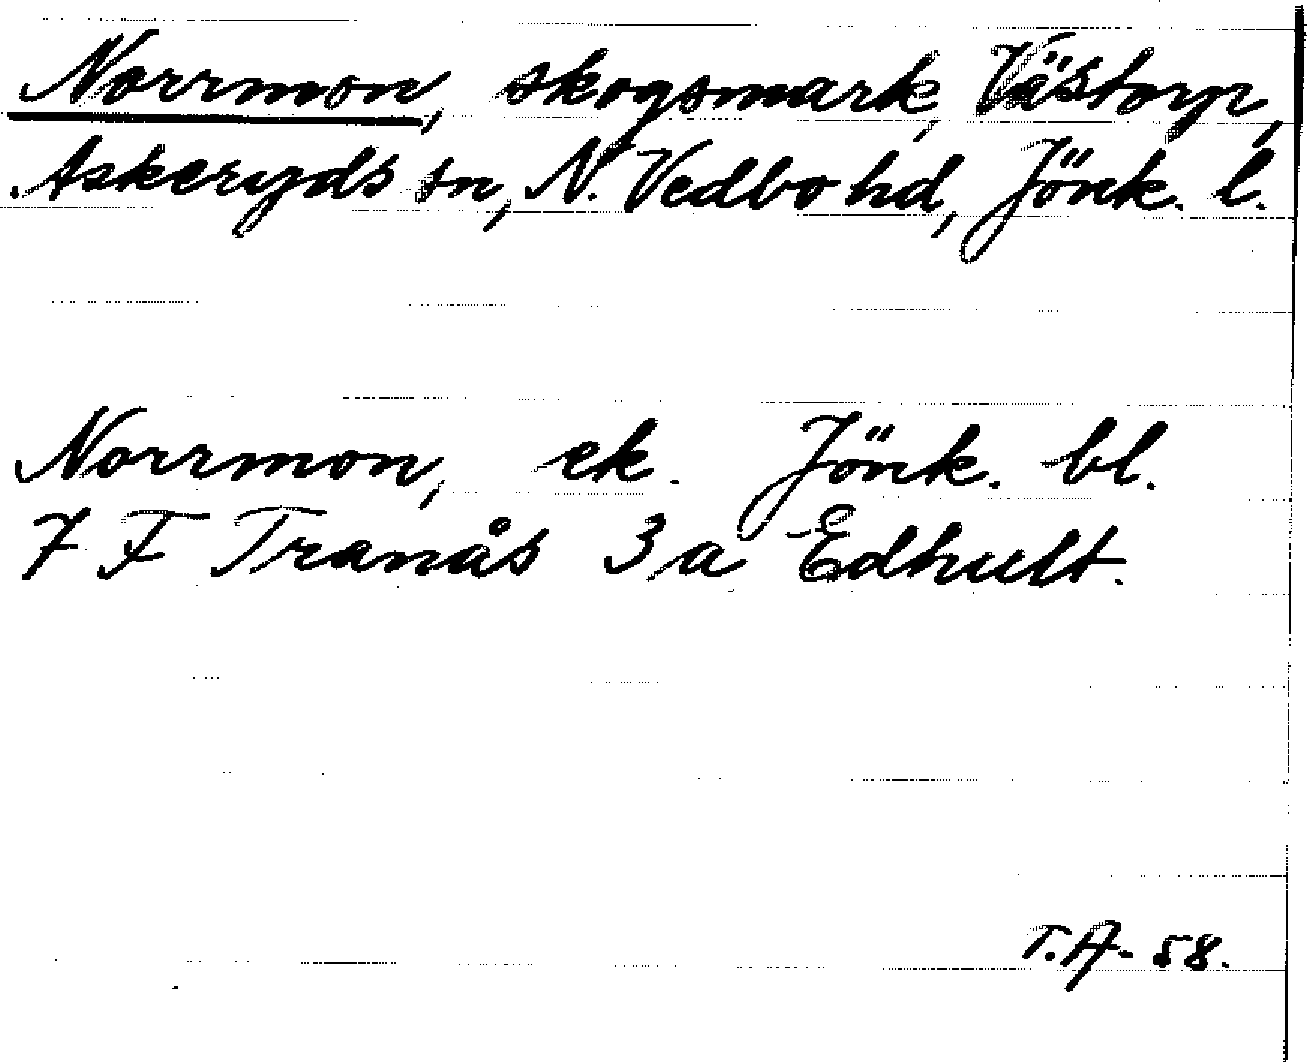 Norrmon, skogsmark, Västorp,
Askeryds sn, N. Vedbo hd, Jönk. l.
Norrmon, ek. Jönk. bl.
7 F Tranås 3 a Edhult.
T.A- 58.